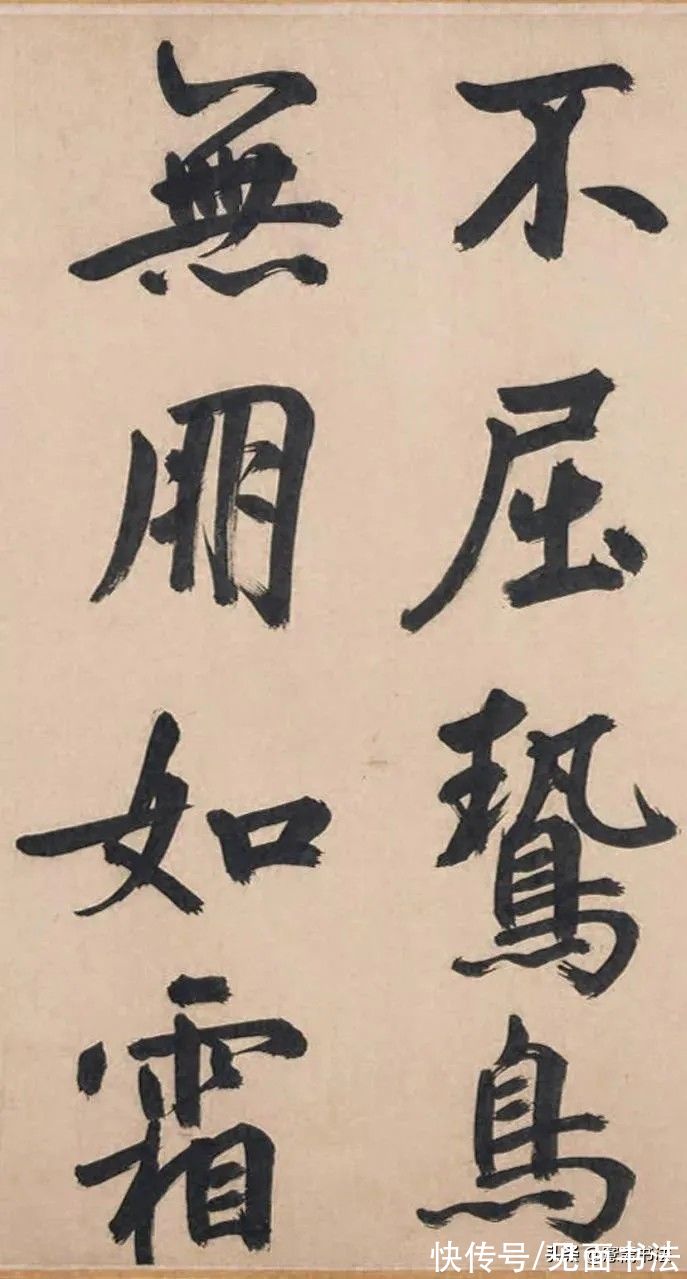 不屈鷙鳥
無朋如霜
快传号/见面书法